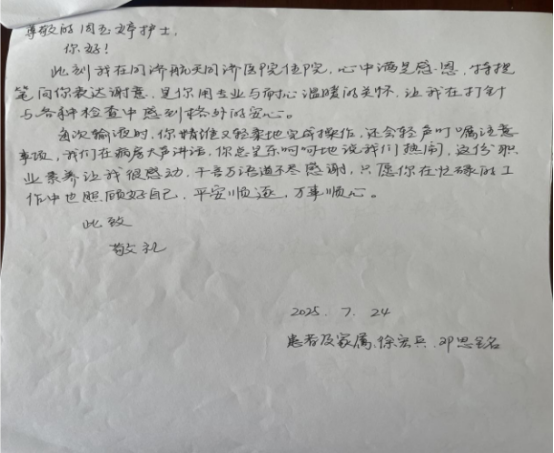 尊敬的周玉婷护士,
你好!
此刻我在同济航天同济医院住院,心中满是感恩,特提
笔向你表达谢意,是你用专业与耐心温暖的关怀,让我在打针
与各种检查中感到格外的安心。
每次输液时,你精准又轻柔地完成操作,还会轻声叮嘱注意
事项,我们在病房大声讲话,你总呈乐呵呵地说我们热闹,这份职
业素养让我很感动,千言万语道不尽感谢,只愿你在忙碌的工
作中也照顾好自己,平安顺遂,万事顺心。
此致
敬礼
2025.7.24
患者及家属:徐宏兵、邓思